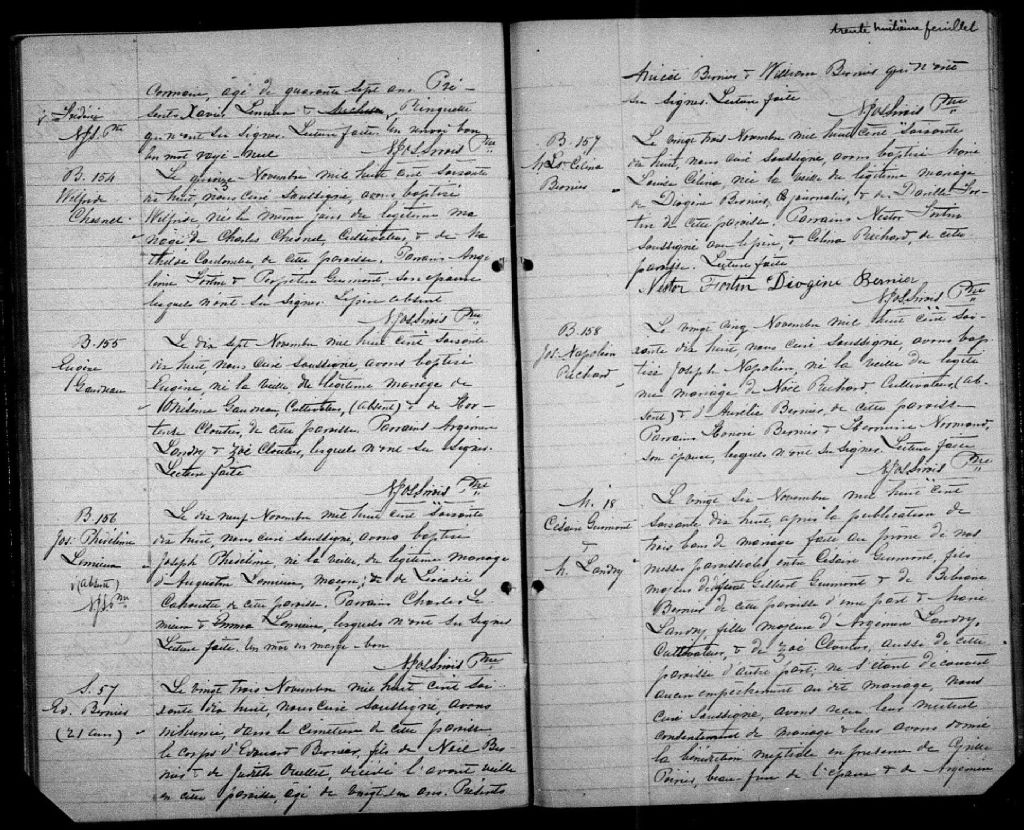 Cormier, âgé de quarante sept ans. Pré-
sents Xavier Lemieux & Ringuette
qui n'ont su signer. Lecture faite. Un renvoi bon
Un mot rayé nul NJosSirois Ptre
& Frédéric
NJS. Ptre
B. 154
Wilfrid
Chesnel
Le quinze Novembre mil huit cent soixante
dix huit, nous curé soussigné, avons baptisé
Wilfrid, né le même jour du légitime ma
riage de Charles Chesnel, Cultivateur, & de
Coulombe, de cette paroisse. Parrain
Fortin & Perpétue Guimont, son épouse
lesquels n'ont su signer. Le père absent
NJosSirois Ptre
B. 155
Eugène
Gaudreau
Le dix sept Novembre mil huit cent soixante
dix huit nous curé soussigné, avons baptisé
Eugène, né la veille du légitime mariage de
Onésime Gaudreau, Cultivateur, (absent) & de Hor-
tense Cloutier, de cette paroisse. Parrains
Landry & Zoé Cloutier, lesquels n'ont su signer.
Lecture faite
NJosSirois Ptre
B. 156
Jos: 
Lemieux
& (absent)
NJS Ptre
Le dix neuf Novembre mil huit cent soixante
dix huit nous curé soussigné, avons baptisé
Joseph né la veille, du légitime mariage
d'Augustin Lemieux, maçon, & de Léocadie
de cette paroisse. Parrains Charles Le
mieux & Emma Lemieux, lesquels n'ont su signer
Lecture faite. Un mot en marge bon
NJosSirois Ptre
S. 57
Ed. Bernier
(21 ans)
Le vingt trois Novembre mil huit cent soi-
xante dix huit, nous curé soussigné, avons
inhumé, dans le cimetière de cette paroisse
le corps d'Edouard Bernier, fils de Noël Ber
nier & de Judith Ouellet, décédé l'avant veille
en cette paroisse, âgé de vingt un ans. Présents
trente huitième feuillet
Bernier & William Bernier qui n'ont
su signer. Lecture faite
NJosSirois Ptre
B. 157
M. Ls. Célina
Bernier
Le vingt trois Novembre mil huit cent soixante
dix huit, nous curé soussigné, avons baptisé Marie
Louise Célina, née la veille du légitime mariage
de Diogène Bernier, journalier, & de For-
tin de cette paroisse. Parrains Nestor Fortin
soussigné avec le père, & Célina Richard, de cette
paroisse. Lecture faite
Nestor Fortin Diogène Bernier
NJosSirois Ptre
B. 158
Jos: Napoléon
Richard
Le vingt cinq Novembre mil huit cent soi-
xante dix huit, nous curé soussigné, avons bap-
tisé Joseph Napoléon, né la veille du légiti
me mariage de Noël Richard, Cultivateur, (ab-
sent) & d'Aurélie Bernier, de cette paroisse
Parrains Honoré Bernier & Normand,
son épouse, lesquels n'ont su signer. Lecture faite
NJosSirois Ptre
M. 18
Césaire Guimont
&
M. Landry
Le vingt six Novembre mil huit cent
soixante dix huit, après la publication de
trois bans de mariage faite au prône de nos
messes paroissiales entre Césaire Guimont, fils
majeur de défunt Gilbert Guimont & de Bibiane
Bernier de cette paroisse d'une part & Marie
Landry, fille majeure d' Landry,
Cultivateur, & de Zoé Cloutier, aussi de cette
paroisse d'autre part; ne s'étant découvert
aucun empêchement au dit mariage, nous
curé soussigné, avons reçu leur mutuel
consentement de mariage & leur avons donné
la bénédiction nuptiale en présence de Cyrille
Poirier, beau frère de l'époux & de